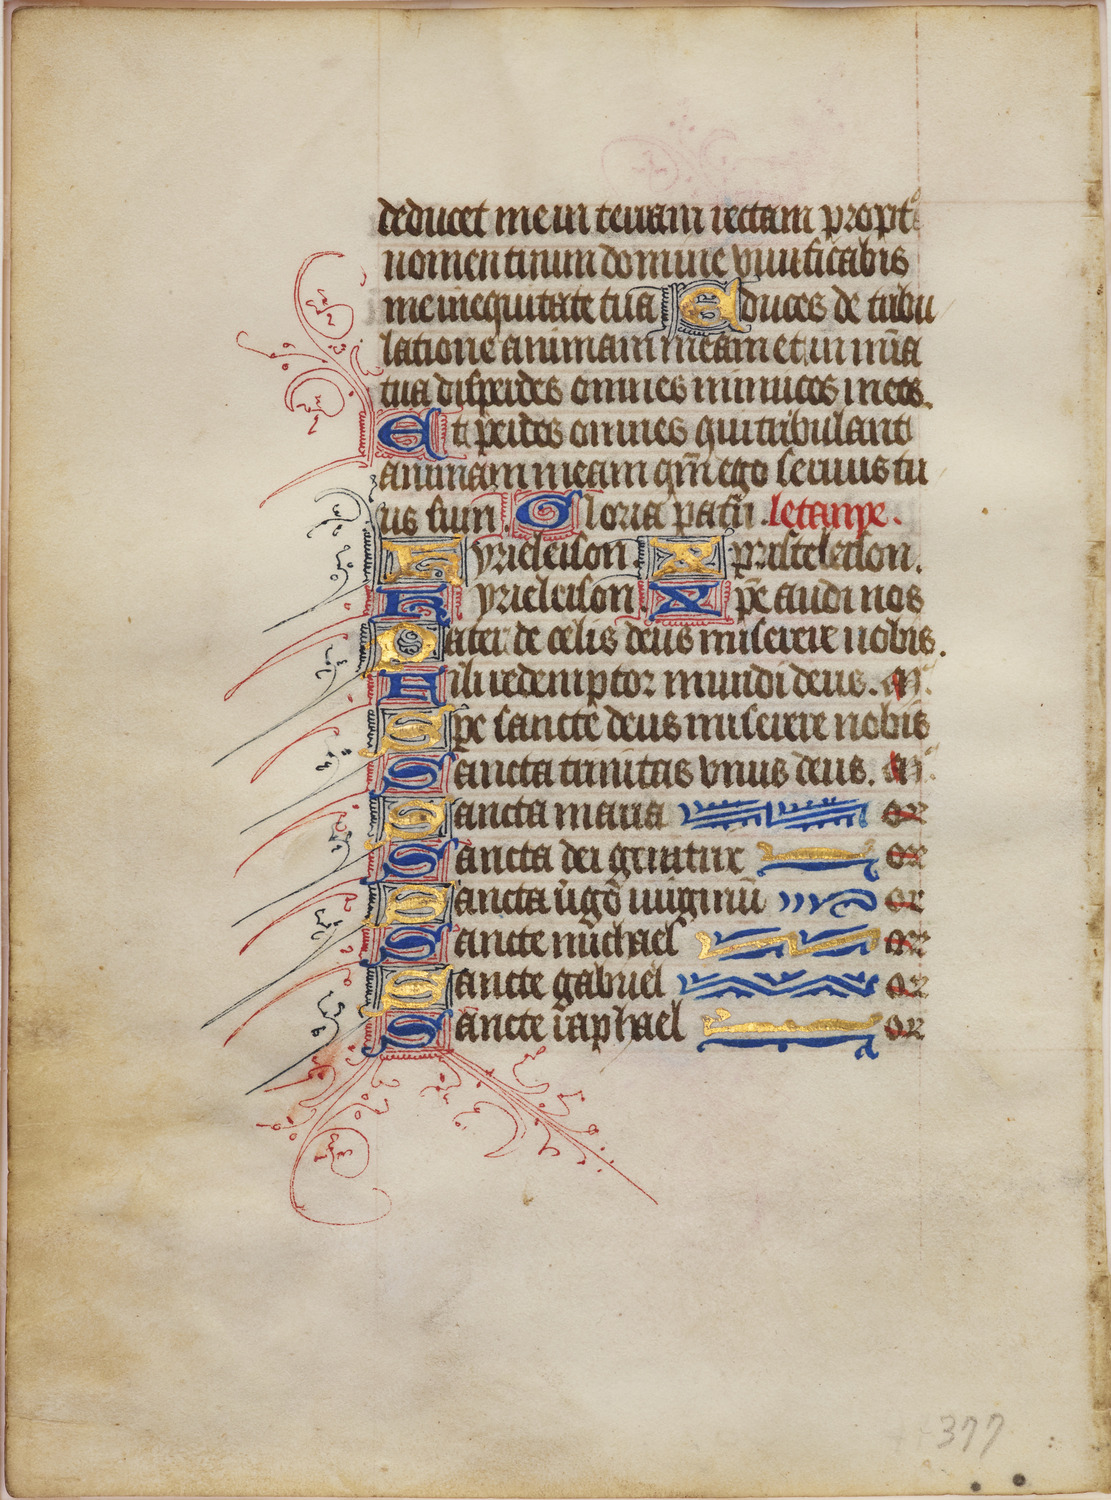 deducet me in terram rectam propt̾
nomen tuum domine viuificabis
me in equitate tua Educes de tribu
latione animam meam et in mīa
tua disperdes omnes inimicos meos.
Et perdes omnes qui tribulant
animam meam qm̄ ego seruus tu
us sum. Gloria patri. letanye.
Kyrieleison Xpristeleison.
Kyrieleison Xp̄e audi nos
Pater de celis deus miserere nobis.
Fili redemptor mundi deus. m̄.
Spe sancte deus miserere nobis
Sancta trinitas vnus deus. m̄.
Sancta maria or
Sancta dei genitrix or
Sancta u̾go uirginū or
Sancte michael or
Sancte gabriel or
Sancte raphael or
377